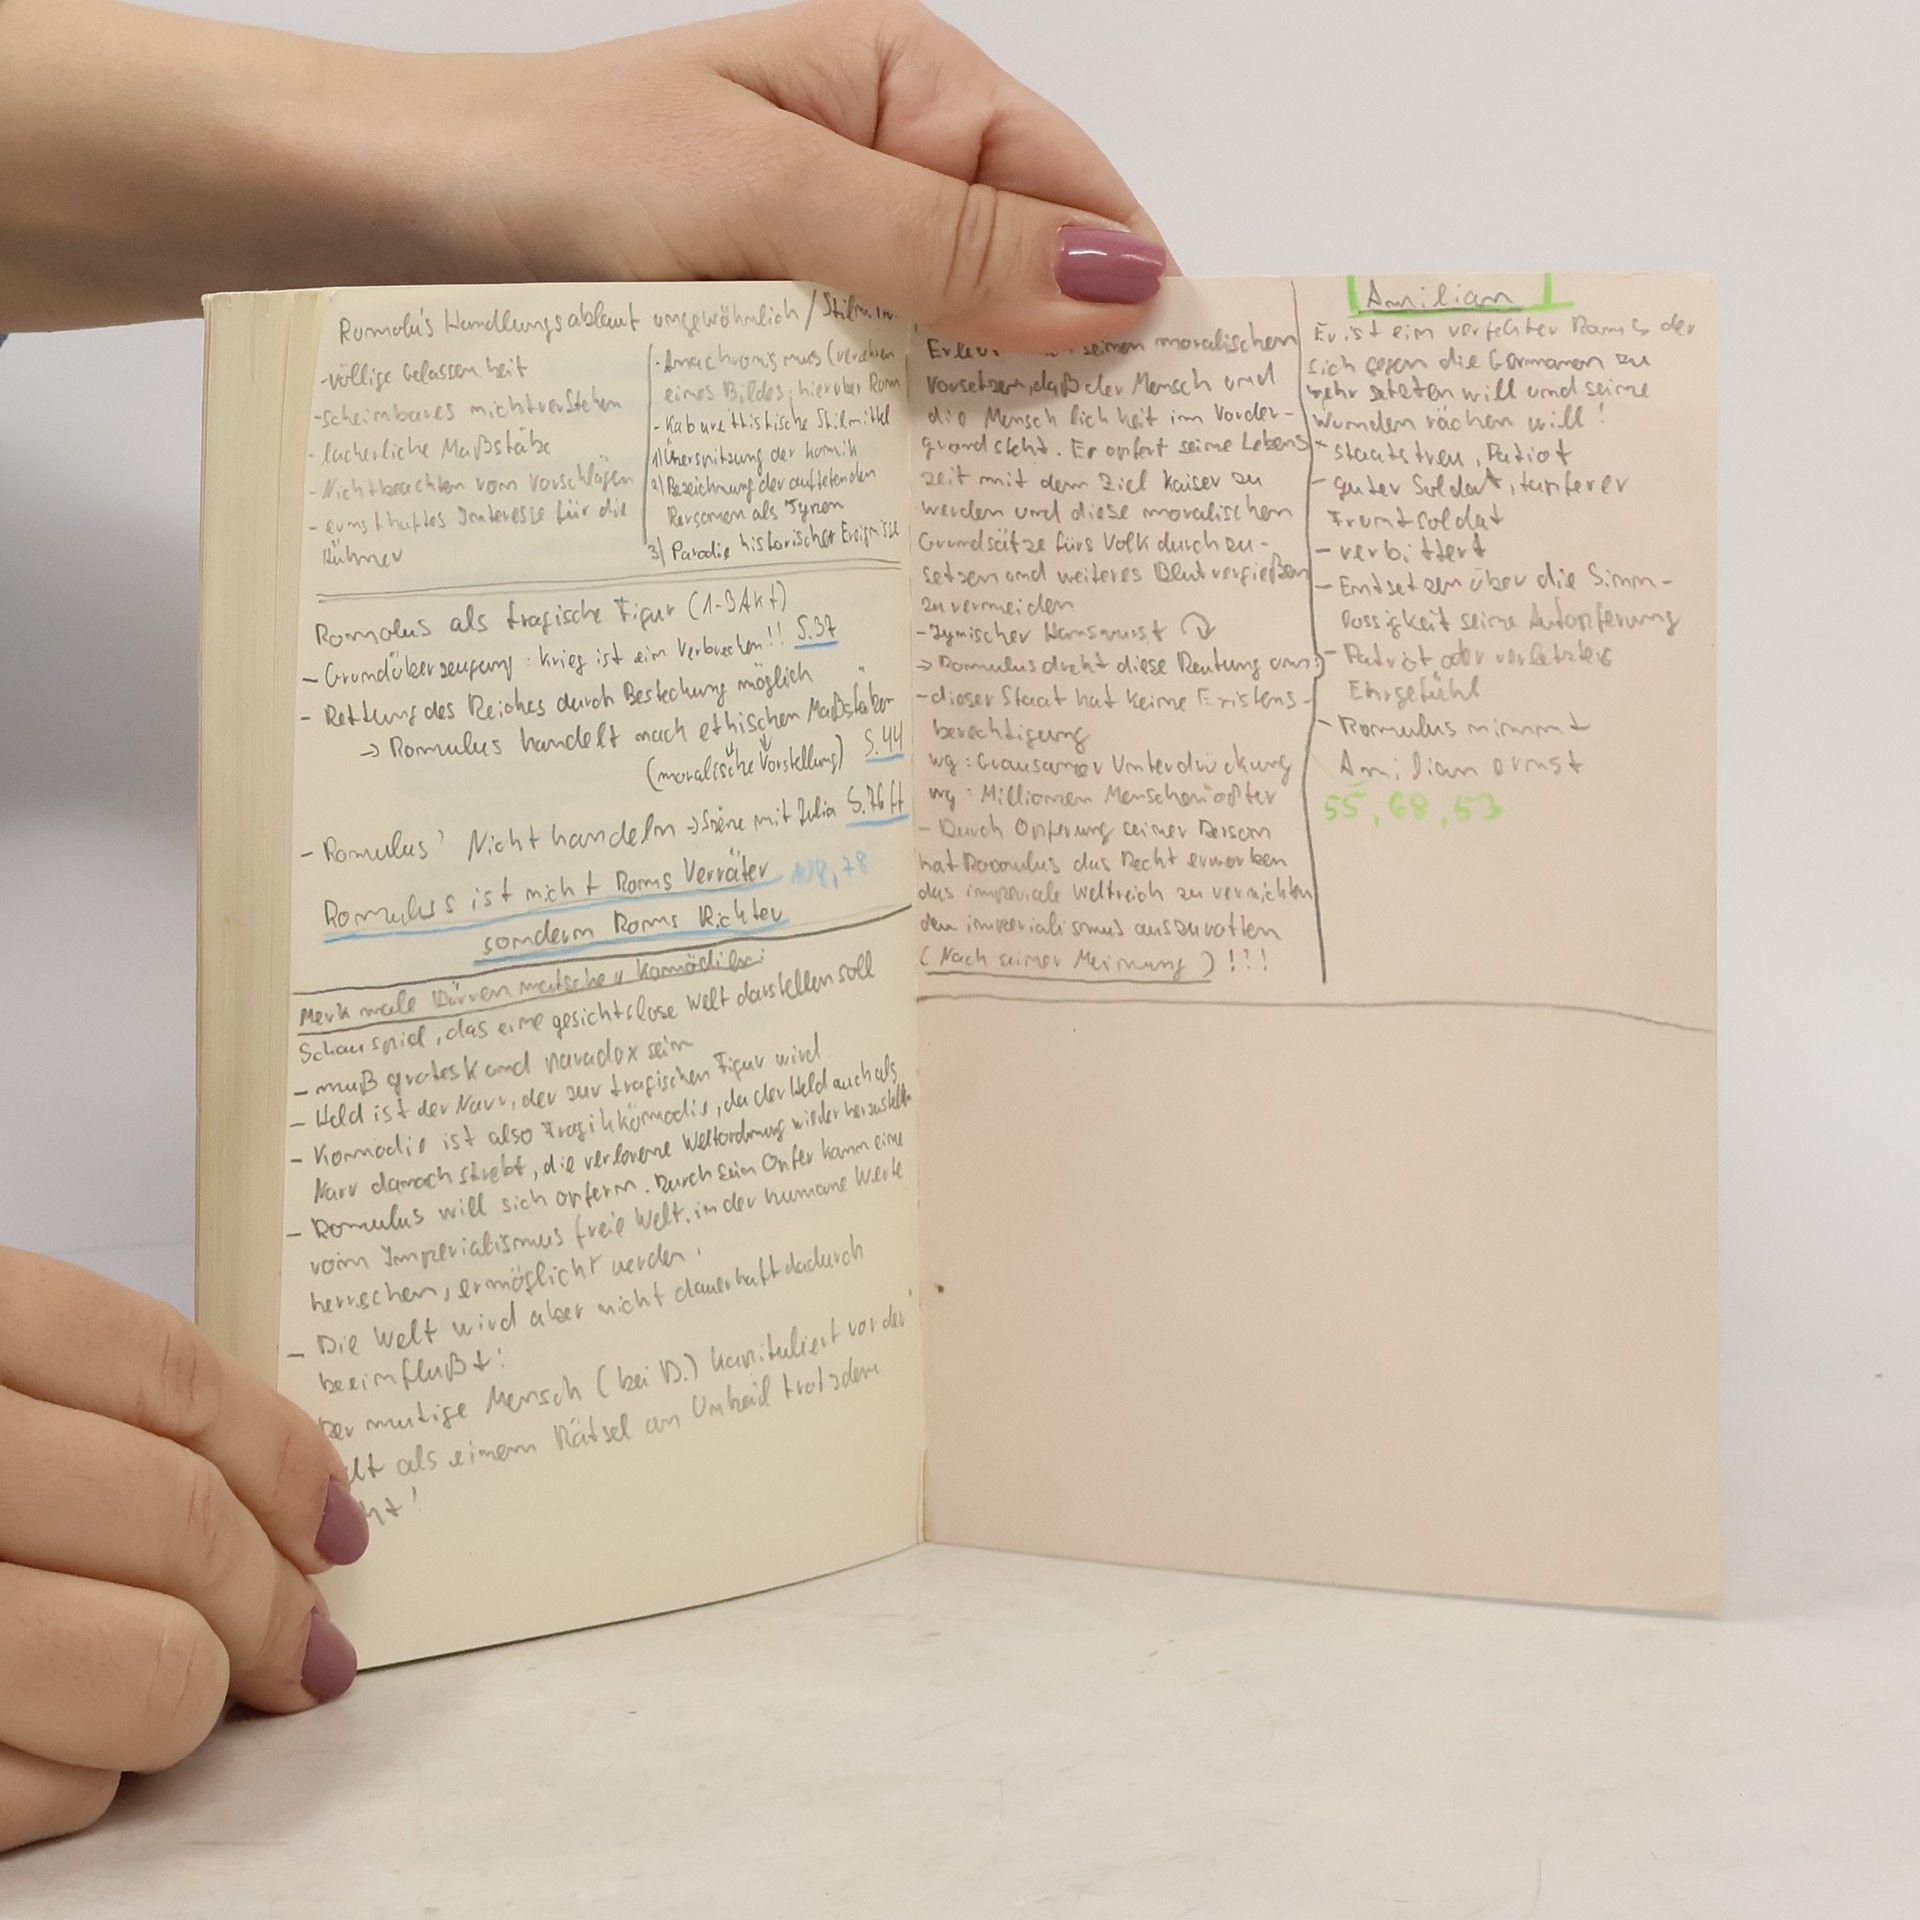 Romolu's Handlungsablauf ungewöhnlich / Stilm
-völlige Gelassenheit
-scheinbares nichtverstehen
- lächerliche Maßstäbe
- Nichtbeachten von Vorschlägen
- ernsthaftes Interesse für die
Hühner
- Anachronismus (verdrehen
eines Bildes, hier über Rom
- Kabarettistische Stilmittel
1) Überspitzung der Komik
2) Bezeichnung der auftretenden
Personen als Typen
3) Parodie historischer Ereignisse
Romolus als tragische Figur (1-3 Akt)
- Grundüberzeugung: Krieg ist ein Verbrechen!! S.37
- Rettung des Reiches durch Bestechung möglich
→ Romulus handelt nach ethischen Maßstäben
(moralische Vorstellung) S.44
- Romulus' Nichthandeln → Szene mit Julia S.76ff
Romulus ist nicht Roms Verräter 78
sondern Roms Richter
Merkmale Dürrenmatscher Komödien:
Schauspiel, das eine gesichtslose Welt darstellen soll
- muß grotesk und paradox sein
- Held ist der Narr, der zur tragischen Figur wird
- Komödie ist also Tragikkömodie, da der Held auch als
Narr danach strebt, die verlorene Weltordnung wieder herzustellen
- Romulus will sich opfern. Durch sein Opfer kann eine
vom Imperialismus freie Welt, in der humane Werte
herrschen, ermöglicht werden.
- Die Welt wird aber nicht dauerhaft dadurch
beeinflußt!
Der mutige Mensch (bei D.) kapituliert vor der
als einem Rätsel an Unheil trotzdem
seinen moralischen
Vorsetzen, daß der Mensch und
die Menschlichkeit im Vorder-
grund steht. Er opfert seine Lebens
zeit mit dem Ziel Kaiser zu
werden und diese moralischen
Grundsätze fürs Volk durchzu-
setzen und weiteres Blutvergießen
zu vermeiden
- Zynischer Hanswurst
→ Romulus dreht diese Deutung um!
- dieser Staat hat keine Existens-
berechtigung
wg: Grausamer Unterdrückung
wg: Millionen Menschenopfer
- Durch Opferung seiner Person
hat Romulus das Recht erworben
das imperiale Weltreich zu vernichten
den imperialismus auszurotten
(Nach seiner Meinung) !!!
Ämilian
Er ist ein verfechter Roms der
sich gegen die Germanen zu
wehr setzten will und seine
Wunden rächen will!
- staatstreu, Patriot
- guter Soldat, tapferer
Frontsoldat
- verbittert
- Entsetzen über die Sinn-
lossigkeit seine Aufopferung
- Patriot oder verletztes
Ehrgefühl
- Romulus nimmt
Ämilian ernst
55, 68, 53